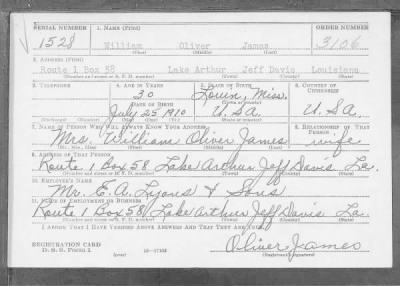 SERIAL NUMBER 1. NAME (Print) ORDER NUMBER
1528 William Oliver James 3106
(First) (Middle) (Last)
2. ADDRESS (Print)
Route 1 Box 58 Lake Arthur Jeff Davis Louisiana
3. TELEPHONE 4. AGE IN YEARS 5. PLACE OF BIRTH 6. COUNTRY OF CITIZENSHIP
30 Louin, Miss.
DATE OF BIRTH
July 25 1910 U.S.A. U.S.A
7. NAME OF PERSON WHO WILL ALWAYS KNOW YOUR ADDRESS 8. RELATIONSHIP OF THAT PERSON
Mrs. William Oliver James wife
9. ADDRESS OF THAT PERSON
Route 1 Box 58 Lake Arthur Jeff Davis La.
10. EMPLOYER'S NAME
Mr. E. A. Lyons & Sons
11. PLACE OF EMPLOYMENT OR BUSINESS
Route 1 Box 58 Lake Arthur Jeff Davis La.
I AFFIRM THAT I HAVE VERIFIED ABOVE ANSWERS AND THAT THEY ARE TRUE.
REGISTRATION CARD
D. S. S. Form 1 (over) Oliver James
(Registrant's signature)